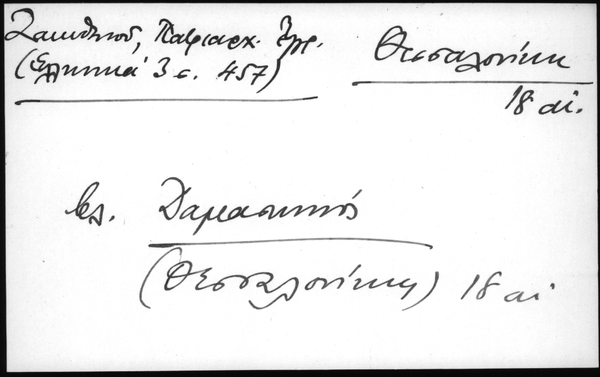 Ζακυθηνοῦ, Πατριαρχ. Ἔγγρ.
(Ἑλληνικά 3 σ. 457)
Θεσσαλονίκη
18 αἰ.
βλ. Δαμασκηνός
(Θεσσαλονίκης) 18 αἰ